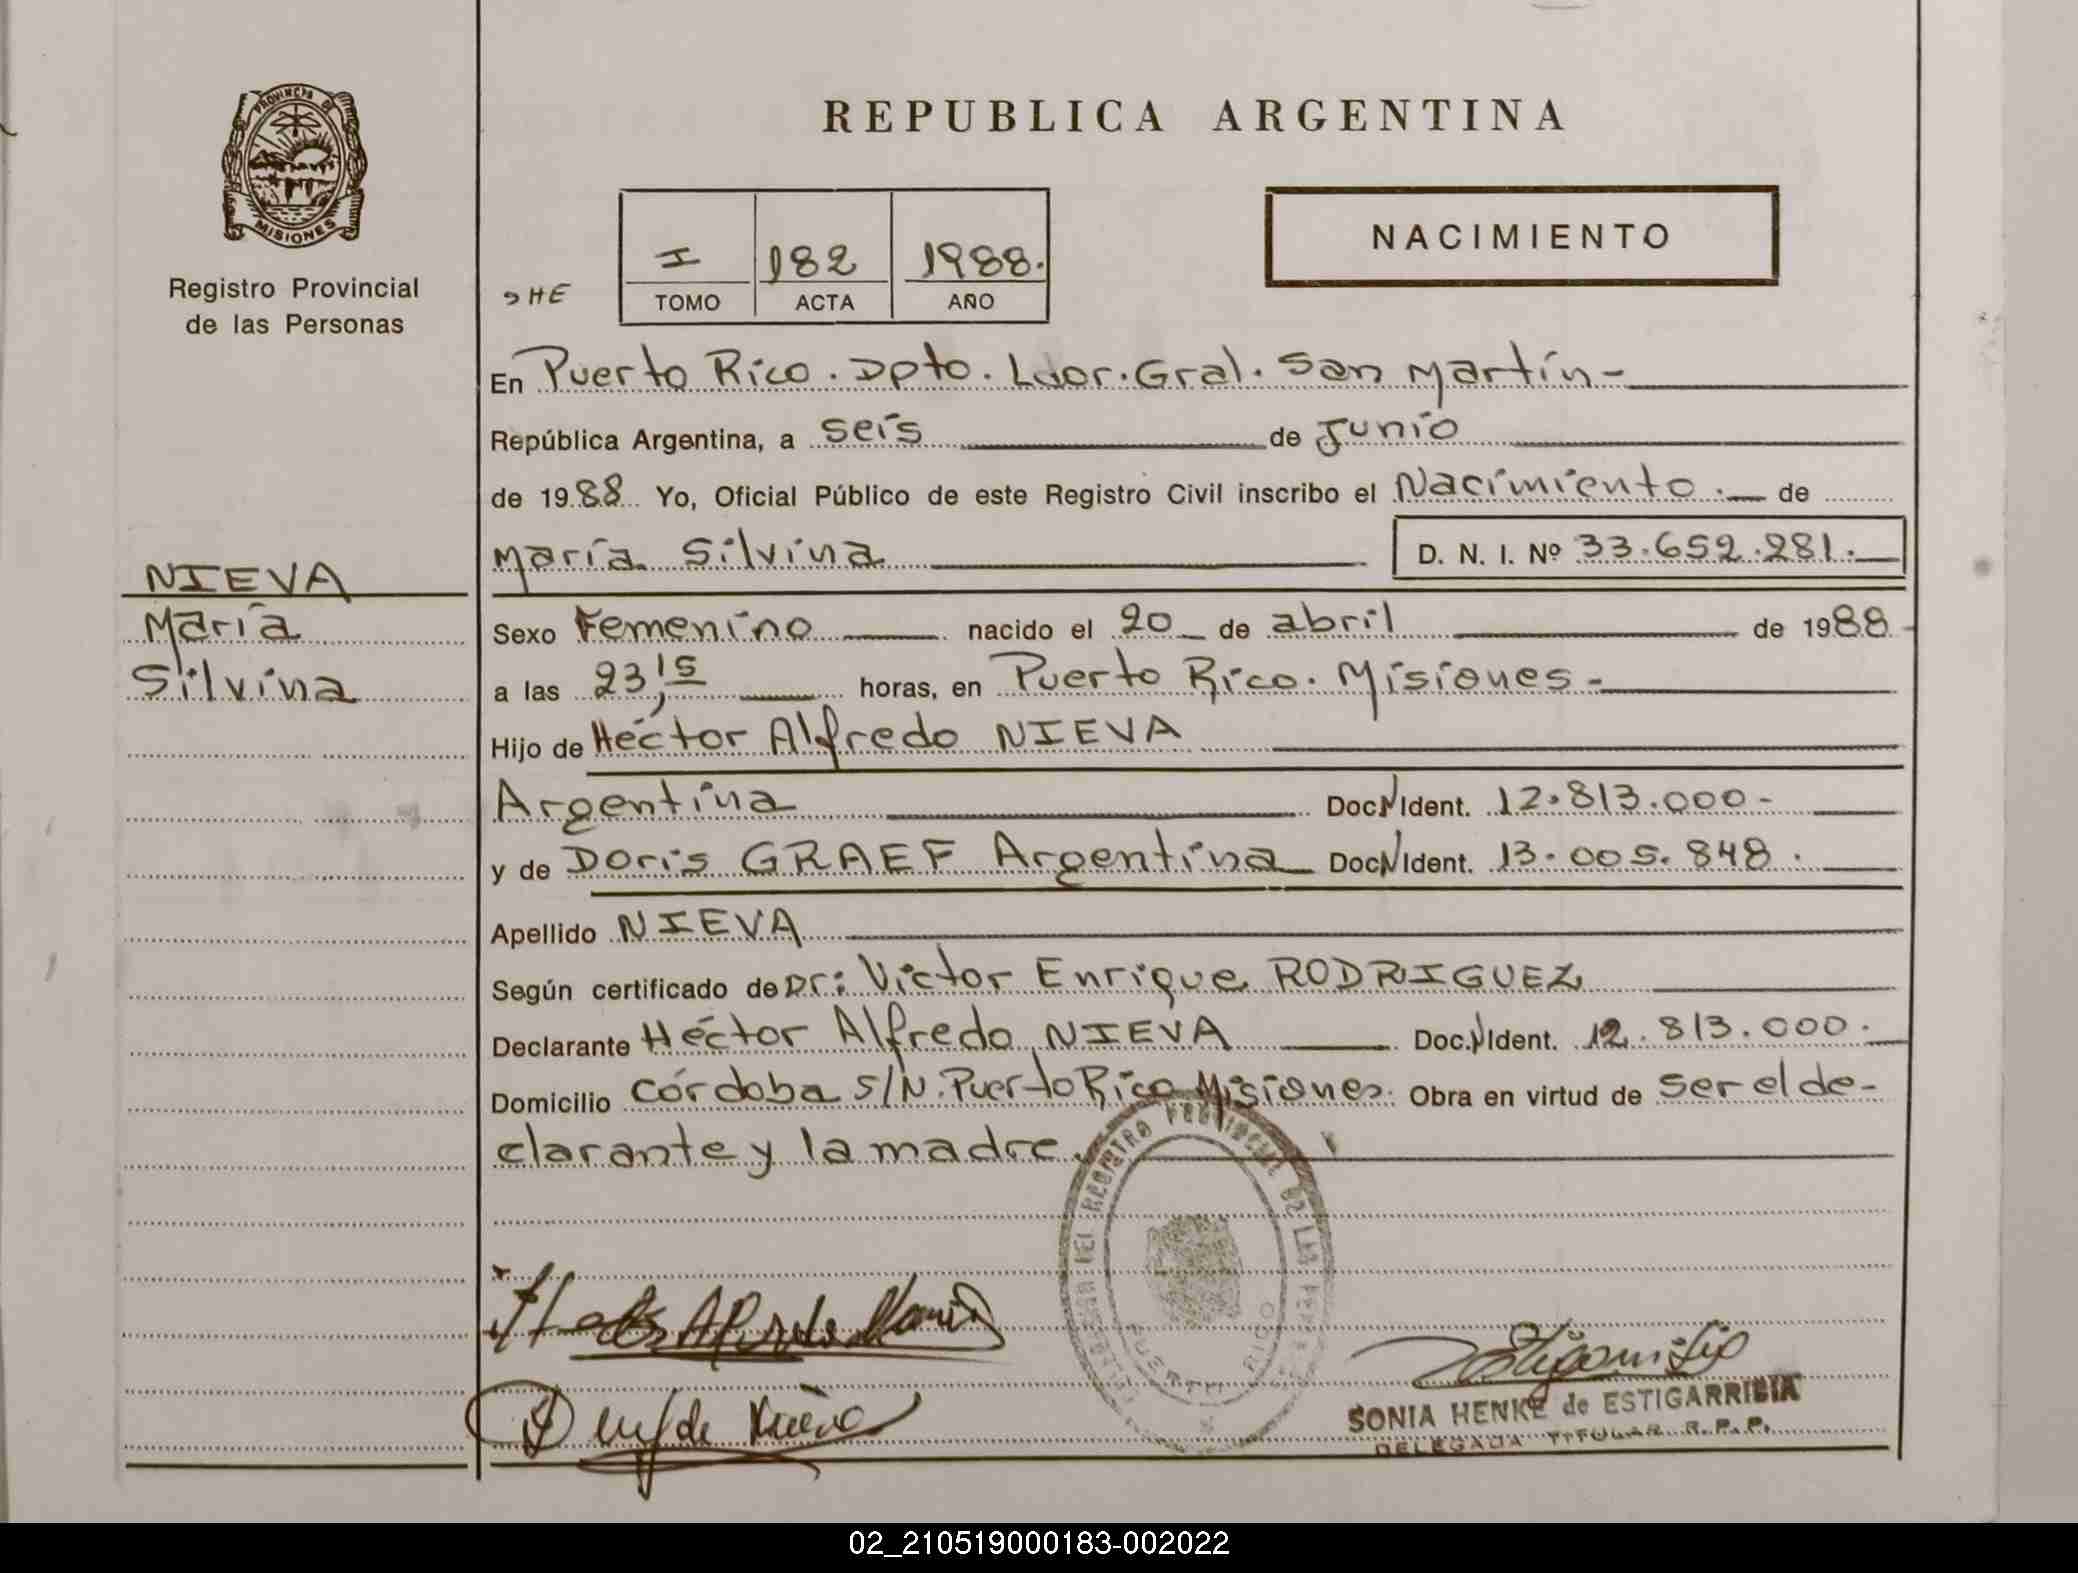 REPUBLICA ARGENTINA
PROVINCIA DE
MISIONES
Registro Provincial
de las Personas
NACIMIENTO
I 182 1988.
TOMO ACTA AÑO
SHE
En Puerto Rico. Dpto. Ldor. Gral. San Martín-
República Argentina, a seis de Junio
de 1988 Yo, Oficial Público de este Registro Civil inscribo el Nacimiento. de
María Silvina D. N. I. Nº 33.652.281.
NIEVA
María
Silvina
Sexo Femenino nacido el 20 de abril de 1988
a las 23,15 horas, en Puerto Rico. Misiones-
Hijo de Héctor Alfredo NIEVA
Argentina Doc.N.Ident. 12.813.000-
y de Doris GRAEF Argentina Doc.N.Ident. 13.005.848.
Apellido NIEVA
Según certificado de Dr: Victor Enrique RODRIGUEZ
Declarante Héctor Alfredo NIEVA Doc.N.Ident. 12.813.000.
Domicilio Córdoba S/N. Puerto Rico Misiones. Obra en virtud de ser el de-
clarante y la madre.
DEL REGISTRO PROVINCIAL DE LAS
PUERTO RICO
SONIA HENKE de ESTIGARRIBIA
DELEGADA TITULAR R.P.P.
02_210519000183-002022